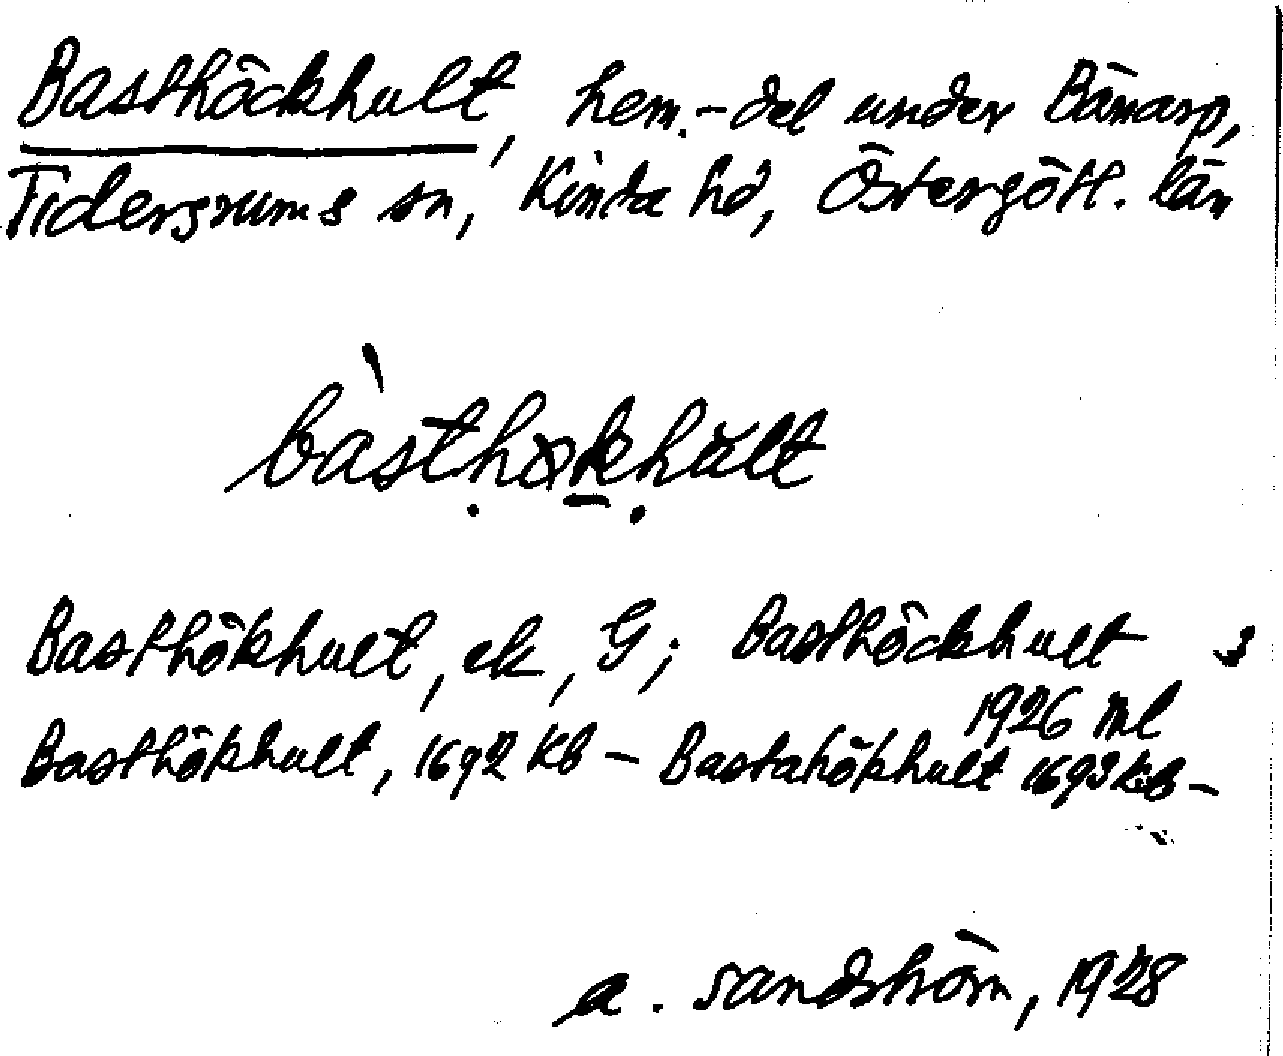 Basthöckhult, hem.-del under Bänarp,
Tidersrums sn, Kinda hd, Östergötl. län
bàsthøkhult
Basthökhult, ek, G; Basthöckhult
1926 ml
Basthökhult, 1692 Kb – Bastahökhult 1693 Kb –
A. Sandström, 1928